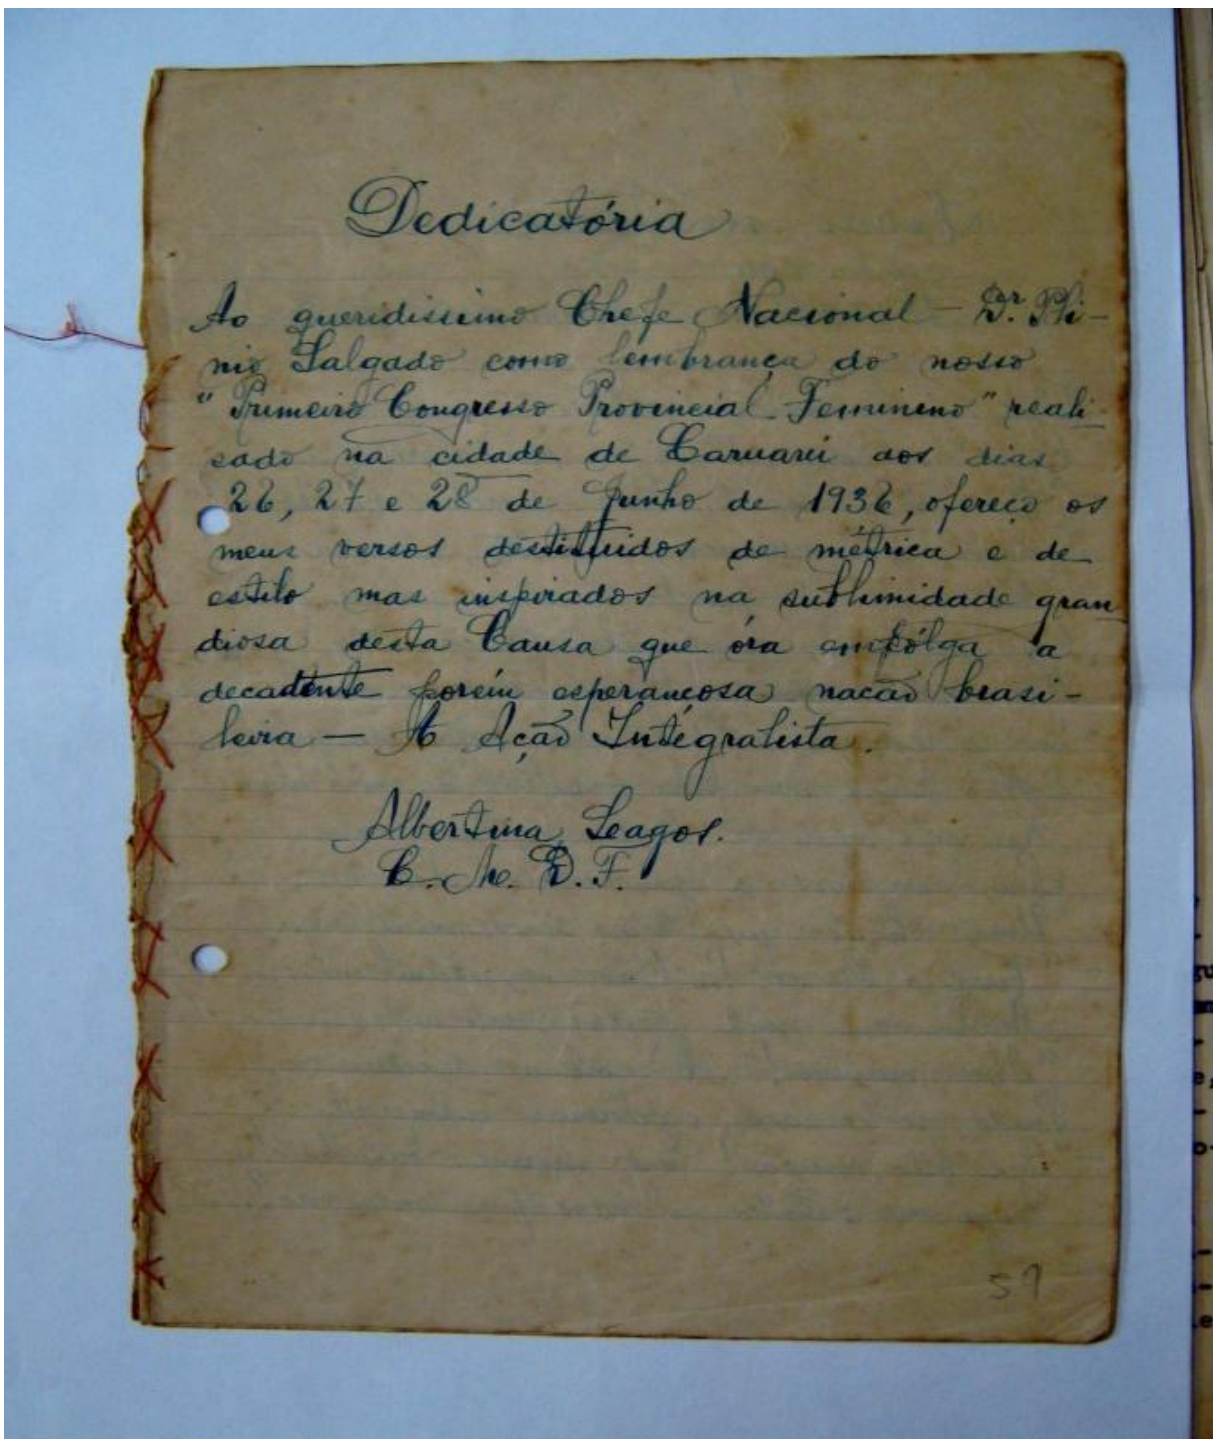 Dedicatória
Ao queridissimo Chefe Nacional — Dr. Pli-
nio Salgado como lembrança do nosso
"Primeiro Congresso Provincial Feminino" reali-
sado na cidade de Caruarú aos dias
26, 27 e 28 de Junho de 1936, ofereço os
meus versos destituidos de métrica e de
estilo mas inspirados na sublimidade gran
diosa desta Causa que óra empólga a
decadente porém esperançosa nação brasi-
leira — A Ação Integralista.
Albertina Leagos.
D. F.
59